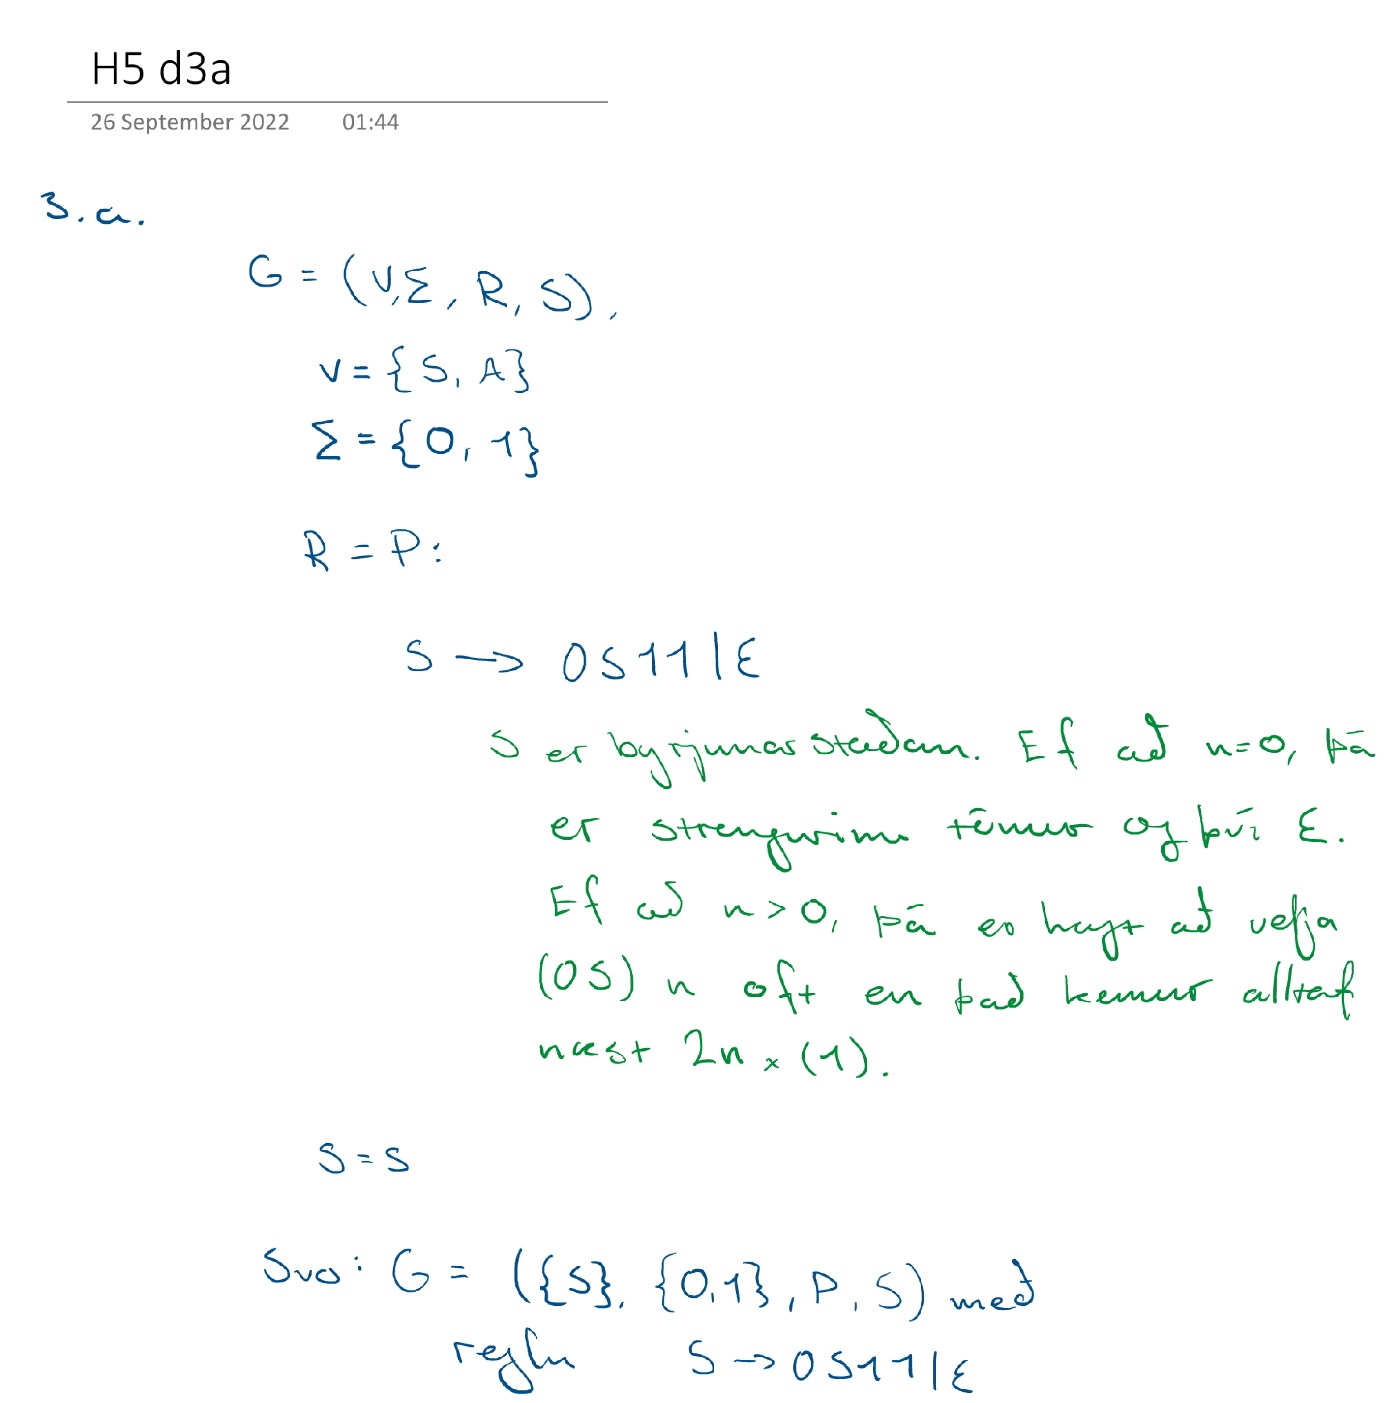 H5 d3a
26 September 2022 01:44
3.a.
G = (V, Σ, R, S),
V = {S, A}
Σ = {0, 1}
R = P:
S → 0S11|ε
S er byrjunarstaðan. Ef að n=0, þá
er strengurinn tómur og því ε.
Ef að n>0, þá er hægt að velja
(0S) n oft en það kemur alltaf
næst 2n × (1).
S = S
Svo: G = ({S}, {0,1}, P, S) með
reglu S → 0S11|ε